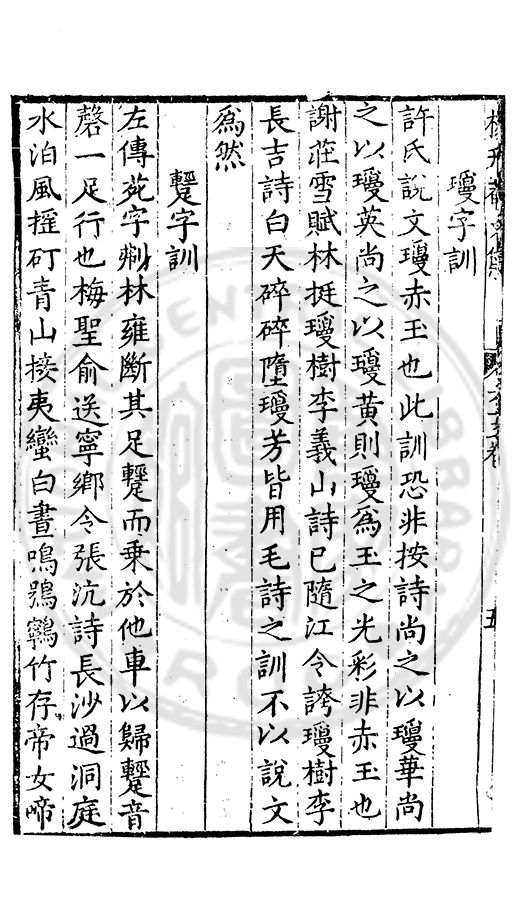 瓊字訓
許氏說文瓊赤玉也此訓恐非按詩尚之以瓊華尚
之以瓊英尚之以瓊黄則瓊爲玉之光彩非赤玉也
謝莊雪賦林挺瓊樹李義山詩已隨江令誇瓊樹李
長吉詩白天碎碎墮瓊芳皆用毛詩之訓不以說文
爲然
鑋字訓
左傳苑字㓨林雍斷其足鑋而乗於他車以歸鑋音
磬一足行也梅聖俞送寧鄉令張沆詩長沙過洞庭
水泊風摧矴青山接夷蠻白晝鳴鵶鸋竹存帝女啼